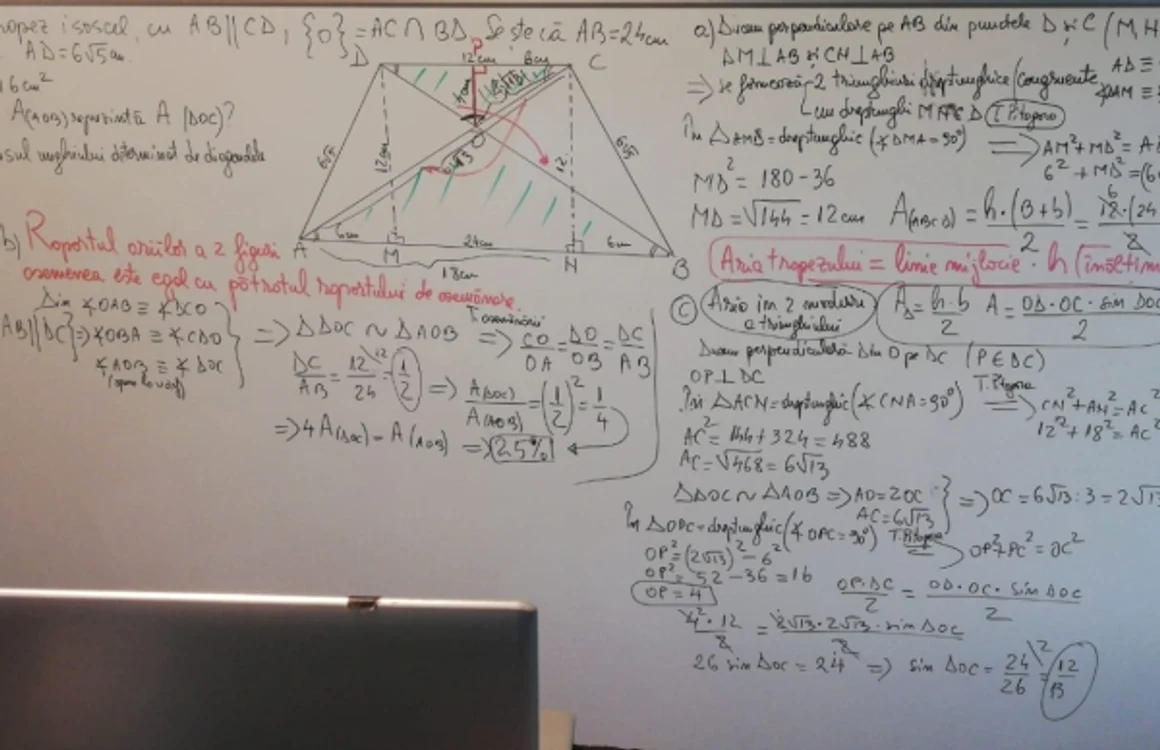 opez isoscel, cu AB||CD, {O} = AC ∩ BD. Se știe că AB=24cm
AD=6√5cm.
16cm²
A(AOB) reprezintă A(DOC)?
sul unghiului determinat de diagonale
D
P
12cm
6cm
C
4cm
O
6√5
12cm
12
6√5
A
6cm
M
24cm
N
6cm
B
18cm
b) Raportul ariilor a 2 figuri
asemenea este egal cu pătratul raportului de asemănare.
Din ∢OAB ≡ ∢DCO
AB||DC => ∢OBA ≡ ∢CDO
∢AOB ≡ ∢DOC
(opuse la vârf)
=> ΔDOC ~ ΔAOB => CO/OA = DO/OB = DC/AB
T. asemănării
DC/AB = 12/24 = 1/2 => A(DOC)/A(AOB) = (1/2)² = 1/4
=> 4A(DOC) = A(AOB) => 25%
a) Ducem perpendiculare pe AB din punctele D și C (M, H
DM⊥AB și CH⊥AB
AD ≡
=> se formează 2 triunghiuri dreptunghice (congruente
∢DAM ≡
un dreptunghi
T. Pitagora
În ΔAMD = dreptunghic (∢DMA = 90°) => AM²+MD² = A
6² + MD² = (6
MD² = 180 - 36
MD = √144 = 12cm A(ABCD) = h·(B+b)/2 = 12·(24
Aria trapezului = linie mijlocie · h (înălțim
c) Aria în 2 moduri
a triunghiului
AΔ = h·b/2 A = OD·OC·sin DOC/2
Ducem perpendiculară din O pe DC (P∈DC)
OP⊥DC
T. Pitagora
În ΔACN = dreptunghic (∢CNA = 90°) => CN²+AN² = AC²
12²+18² = AC²
AC² = 144 + 324 = 488
AC = √468 = 6√13
ΔDOC ~ ΔAOB => AO = 2OC
AC = 6√13
=> OC = 6√13 : 3 = 2√13
În ΔOPC = dreptunghic (∢OPC = 90°) T. Pitagora => OP²+PC² = OC²
OP² = (2√13)² - 6²
OP² = 52 - 36 = 16
OP = 4
OP·DC/2 = OD·OC·sin DOC/2
4·12/2 = 2√13·2√13·sin DOC/2
26 sin DOC = 24 => sin DOC = 24/26 = 12/13